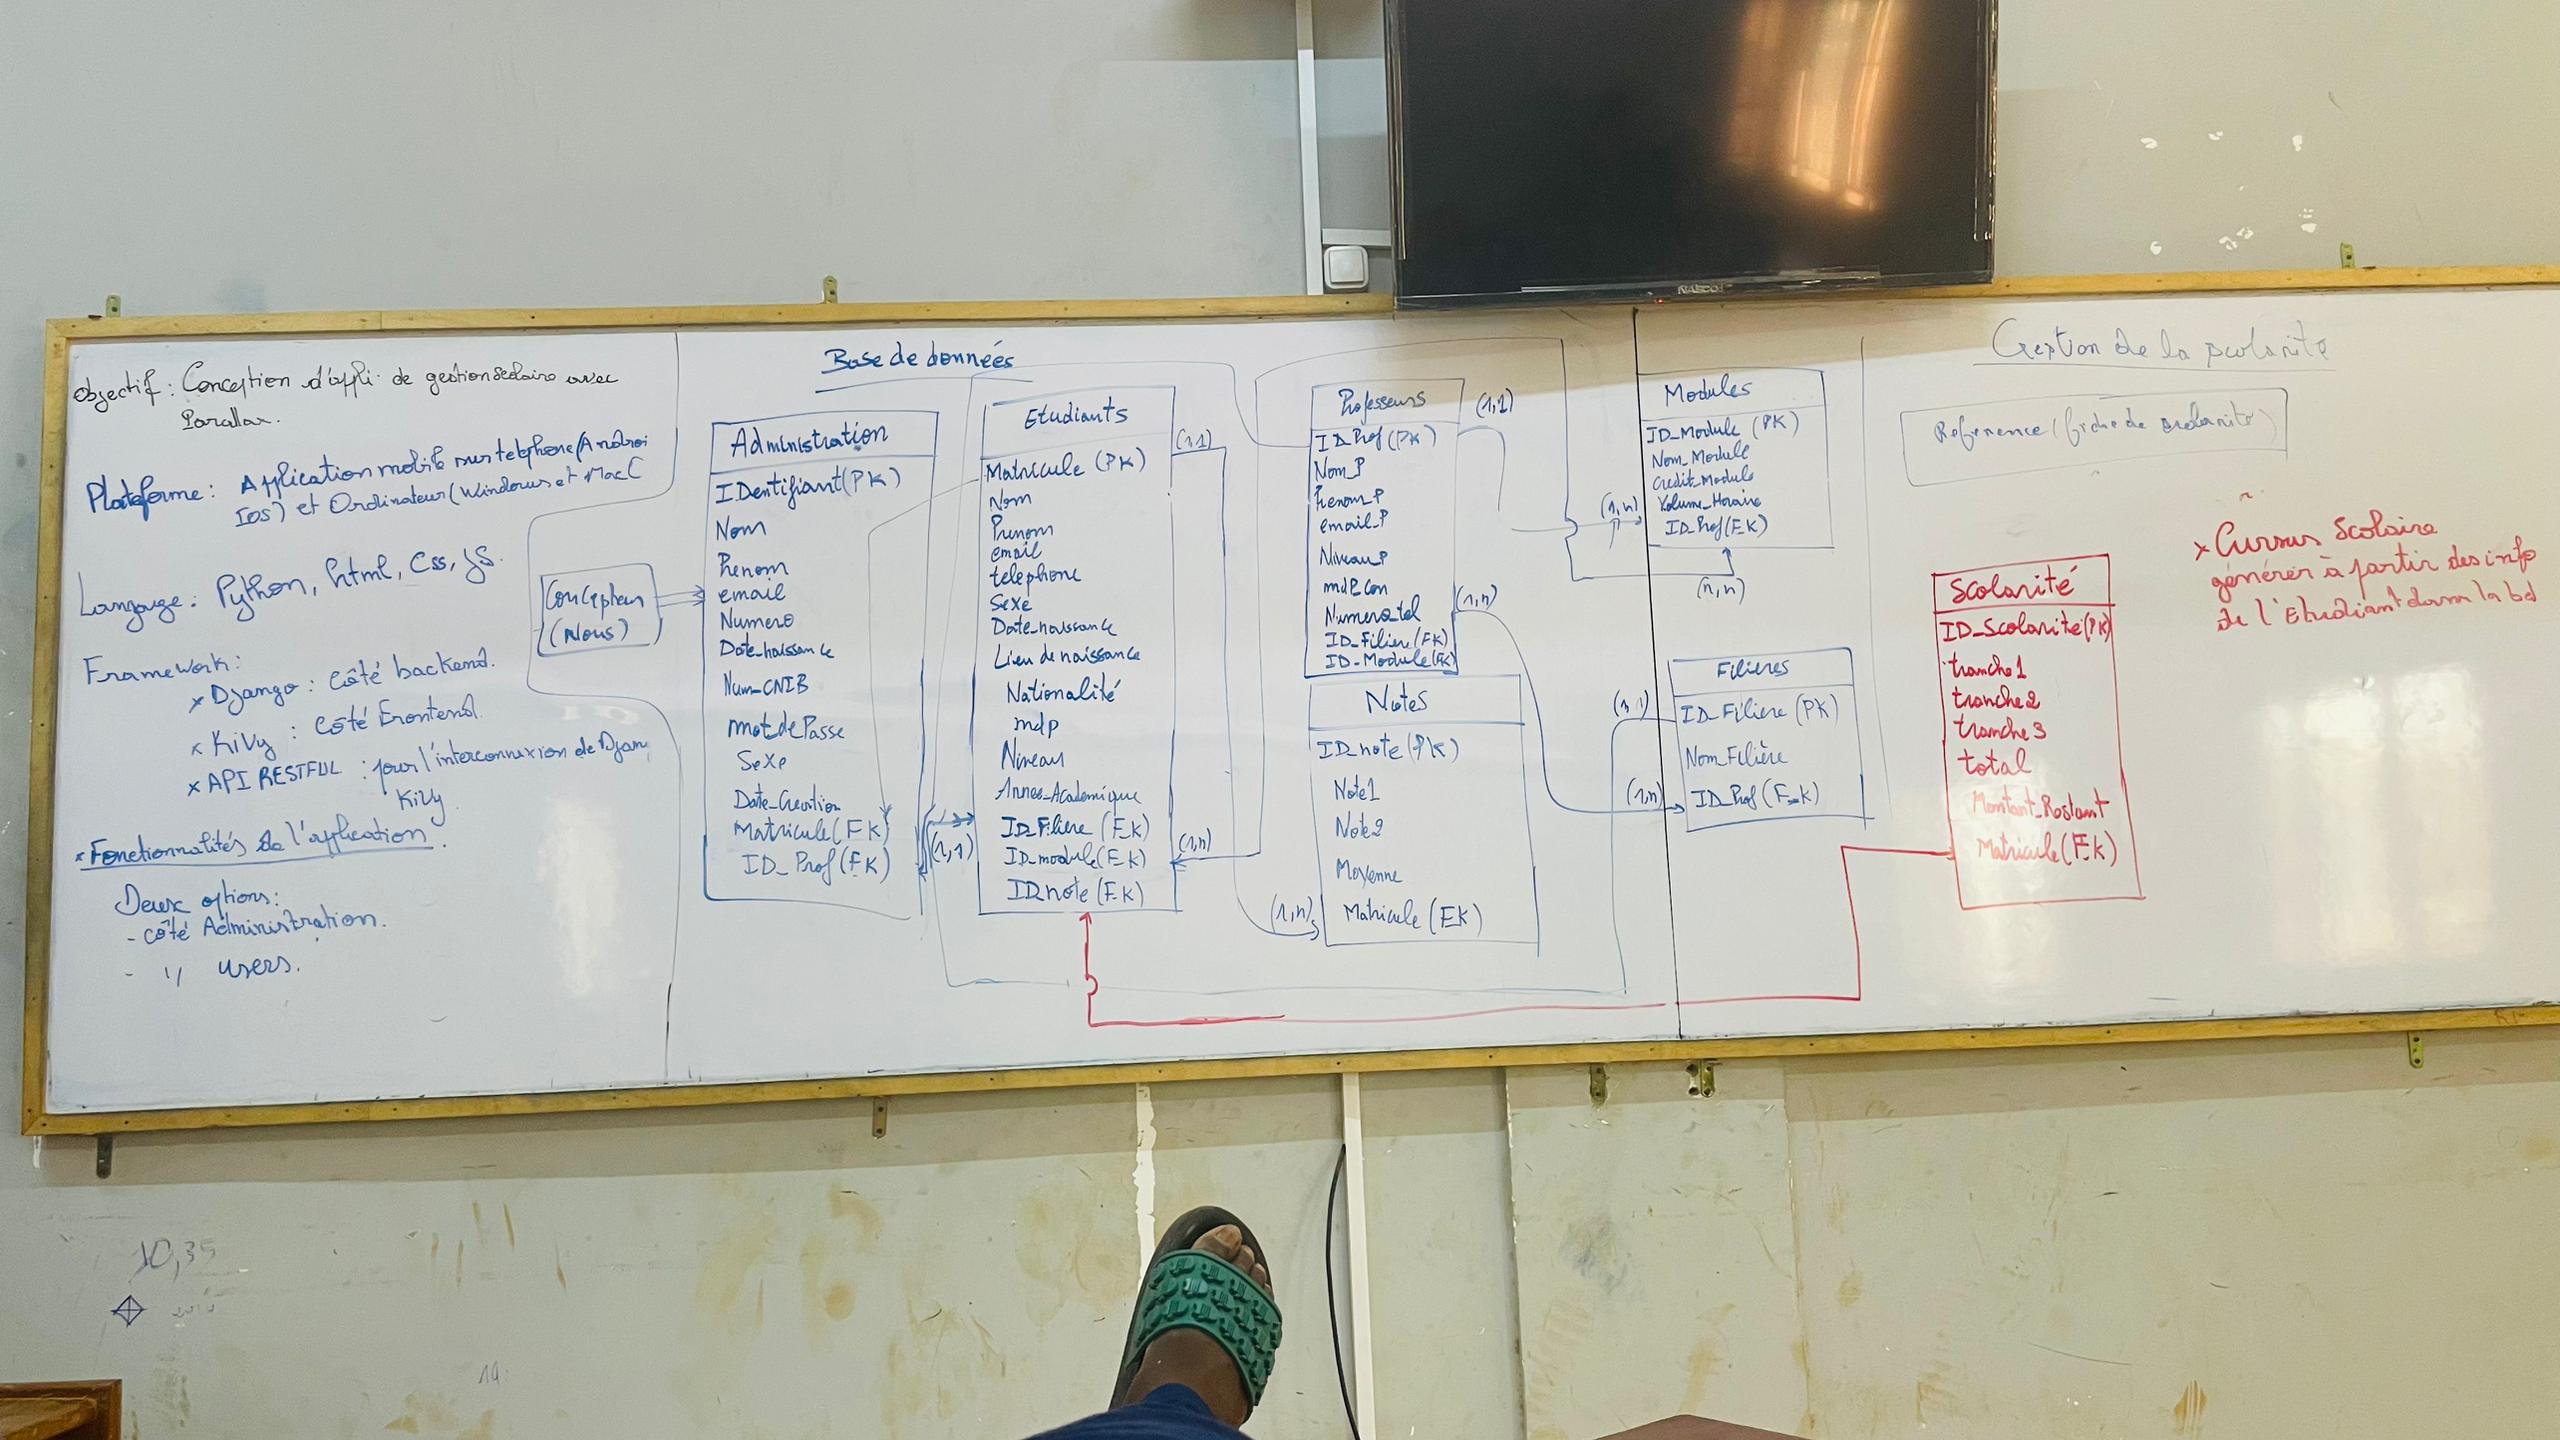 Objectif : Conception d'appli de gestion scolaire avec
Parallax.
Plateforme : Application mobile sur telephone (Androi
Ios) et Ordinateur (Windows et Mac
Langage : Python, html, Css, JS.
FrameWork :
x Django : côté backend.
x KiVy : côté Frontend.
x API RESTFUL : pour l'interconnexion de Djan
KiVy
* Fonctionnalités de l'application.
Deux options :
- côté Administration.
- " users.
Base de données
(Nous)
Administration
IDentifiant (PK)
Nom
Prenom
email
Numero
Date_naissance
Num_CNIB
mot_de Passe
Sexe
Date_Creation
Matricule (FK)
ID_Prof (FK)
(1,1)
Etudiants
Matricule (PK)
Nom
Prenom
email
telephone
Sexe
Date_naissance
Lieu de naissance
Nationalité
mdp
Niveau
Annee_Academique
ID_Filiere (FK)
ID_module (FK)
ID_note (FK)
(1,1)
(1,n)
(1,n)
Professeurs
ID_Prof (PK)
Nom_P
Prenom_P
email_P
Niveau_P
Numero_tel
ID_Filiere (FK)
ID_Module (FK)
(1,1)
(1,n)
Notes
ID_note (PK)
Note1
Note2
Moyenne
Matricule (FK)
Modules
ID_Module (PK)
Nom_Module
Credit_Module
Volume_Horaire
ID_Prof (FK)
(1,n)
(n,n)
Filieres
ID_Filiere (PK)
Nom_Filière
ID_Prof (F_K)
(1,1)
(1,n)
Gestion de la scolarite
Reference (fiche de scolarité)
Scolarité
ID_Scolarité (PK)
tranche1
tranche2
tranche3
total
Montant_Restant
Matricule (FK)
x Cursus Scolaire
générer à partir des info
de l'Etudiant dans la bd
10,35